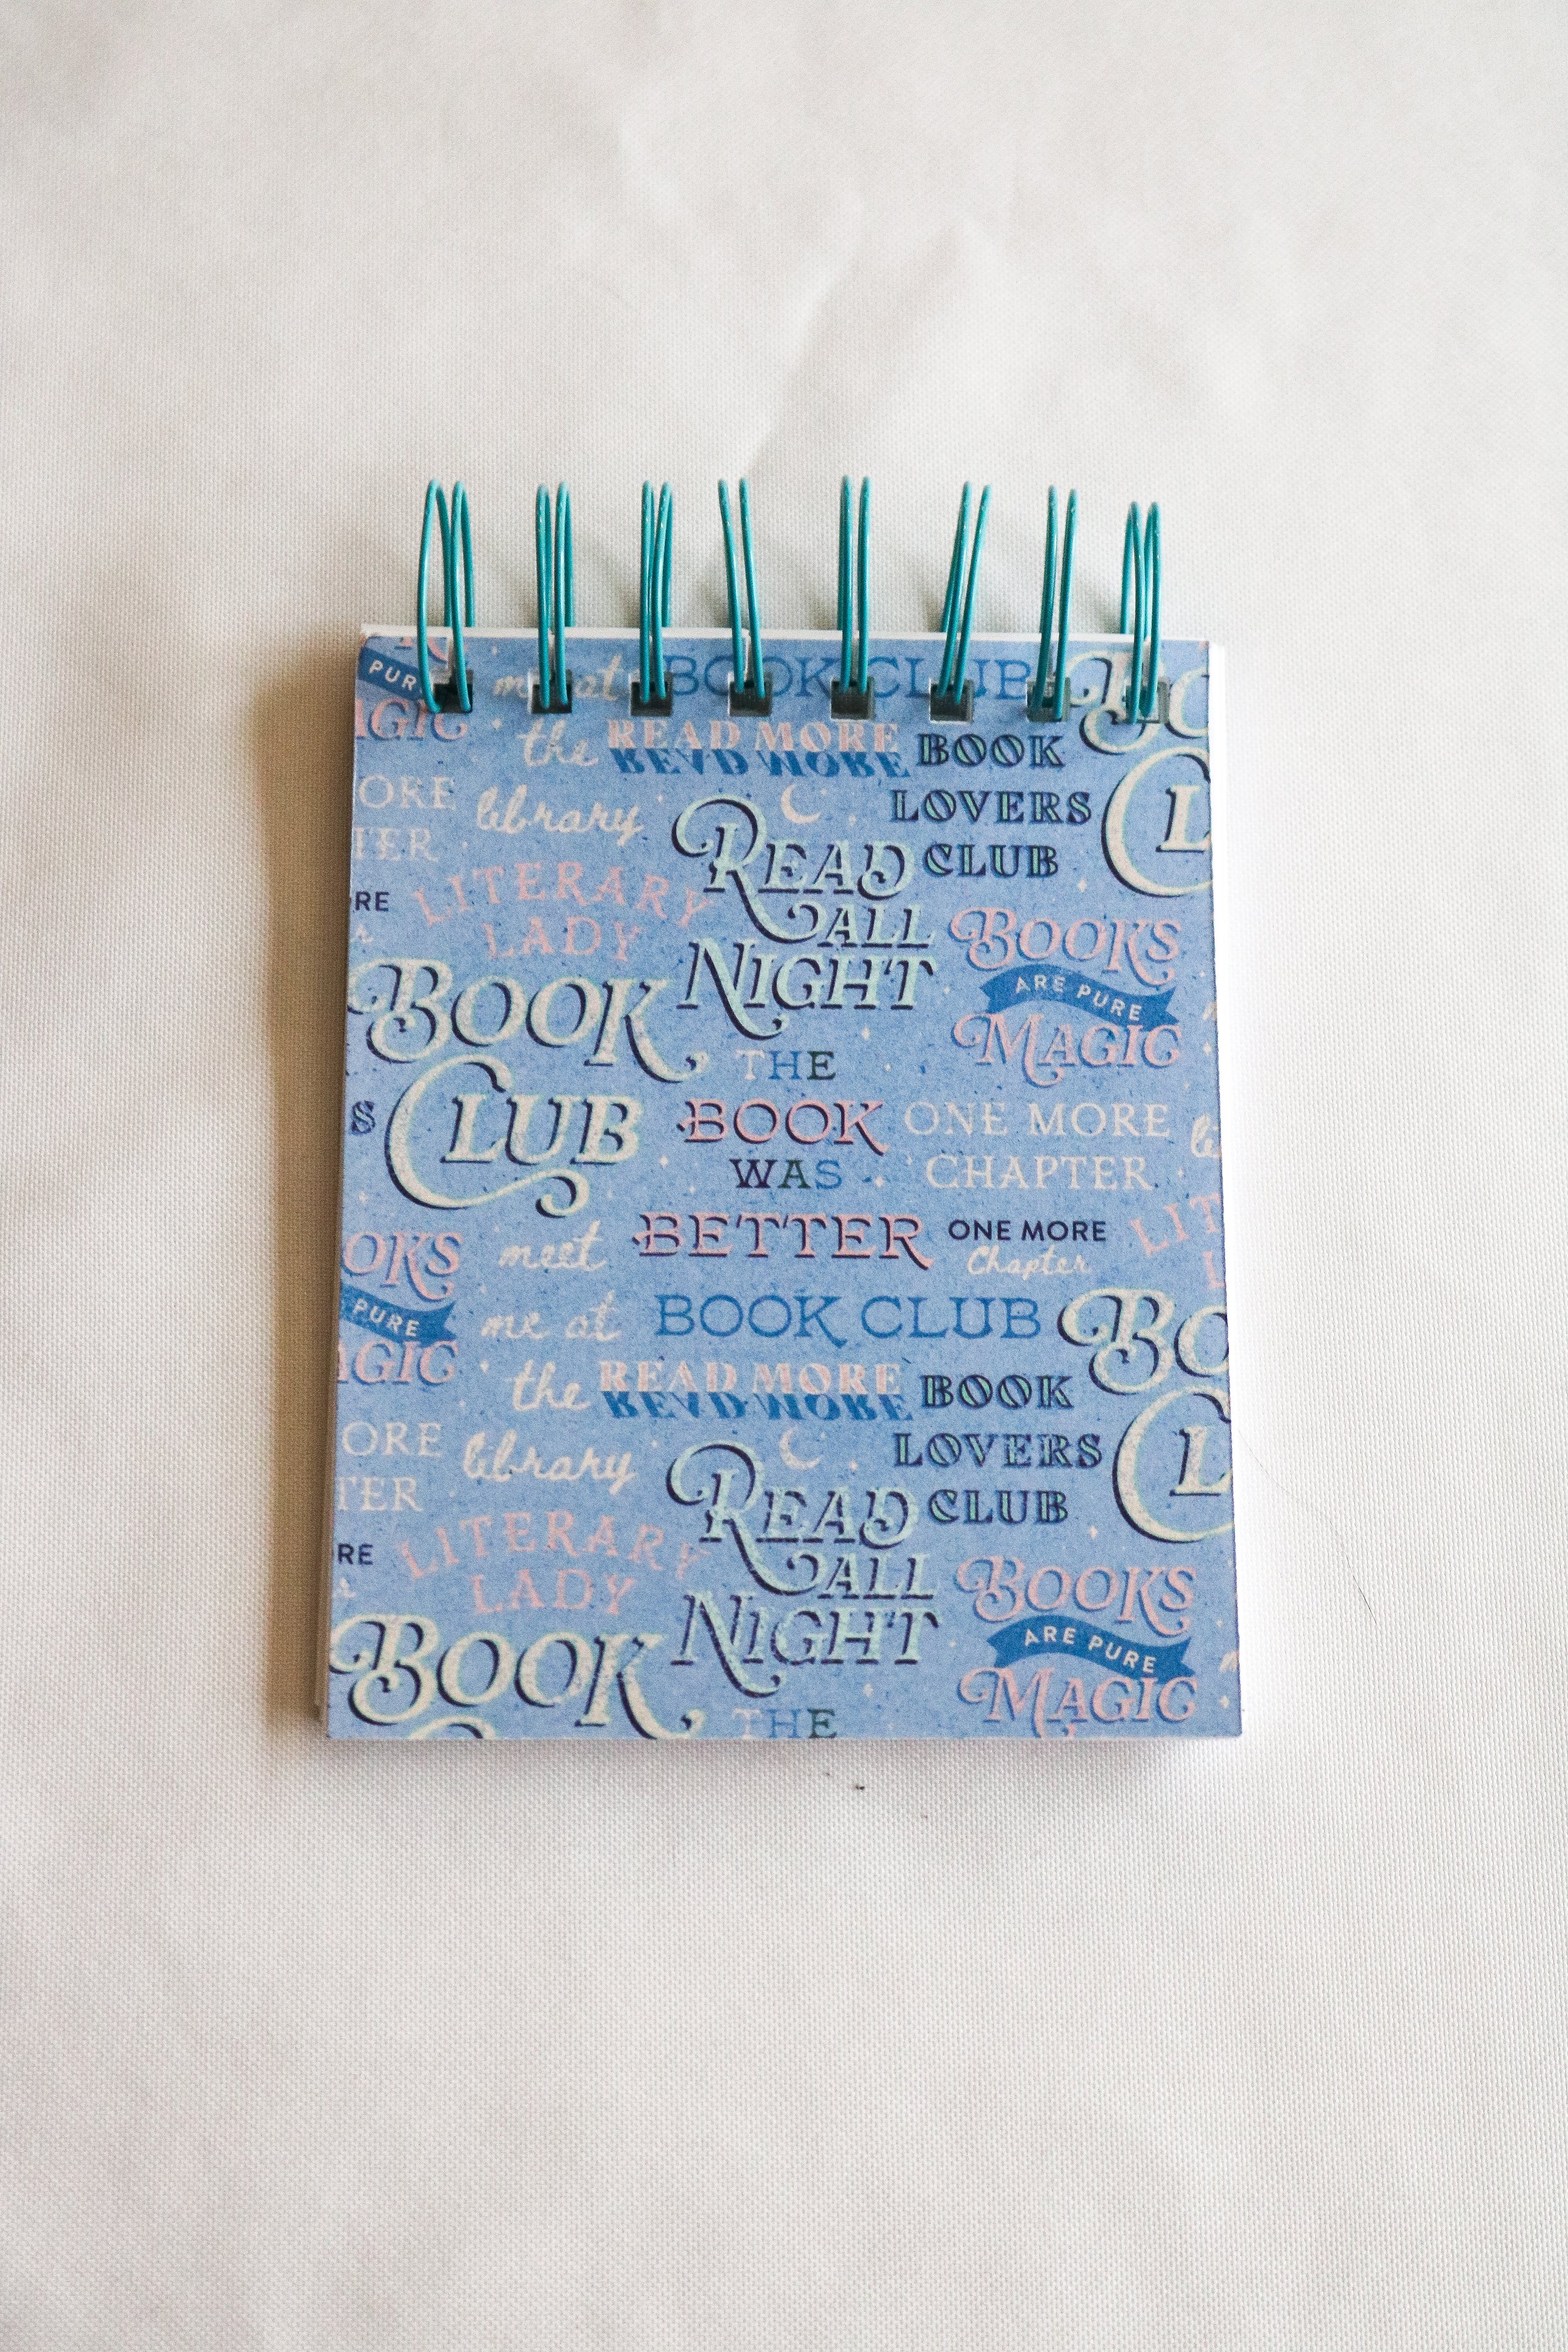 PUR
AGIC
me at
BOOK CLUB
BO
CL
the
READ MORE
READ MORE
BOOK
LOVERS
CLUB
ORE
TER
library
READ
ALL
NIGHT
RE
LITERARY
LADY
BOOKS
ARE PURE
MAGIC
BOOK
CLUB
THE
BOOK
WAS
BETTER
ONE MORE
CHAPTER
S
LIT
L
OKS
PURE
AGIC
meet
me at
the
library
ONE MORE
Chapter
BOOK CLUB
BO
CL
READ MORE
READ MORE
BOOK
LOVERS
CLUB
ORE
TER
READ
ALL
NIGHT
RE
LITERARY
LADY
BOOKS
ARE PURE
MAGIC
BOOK
THE